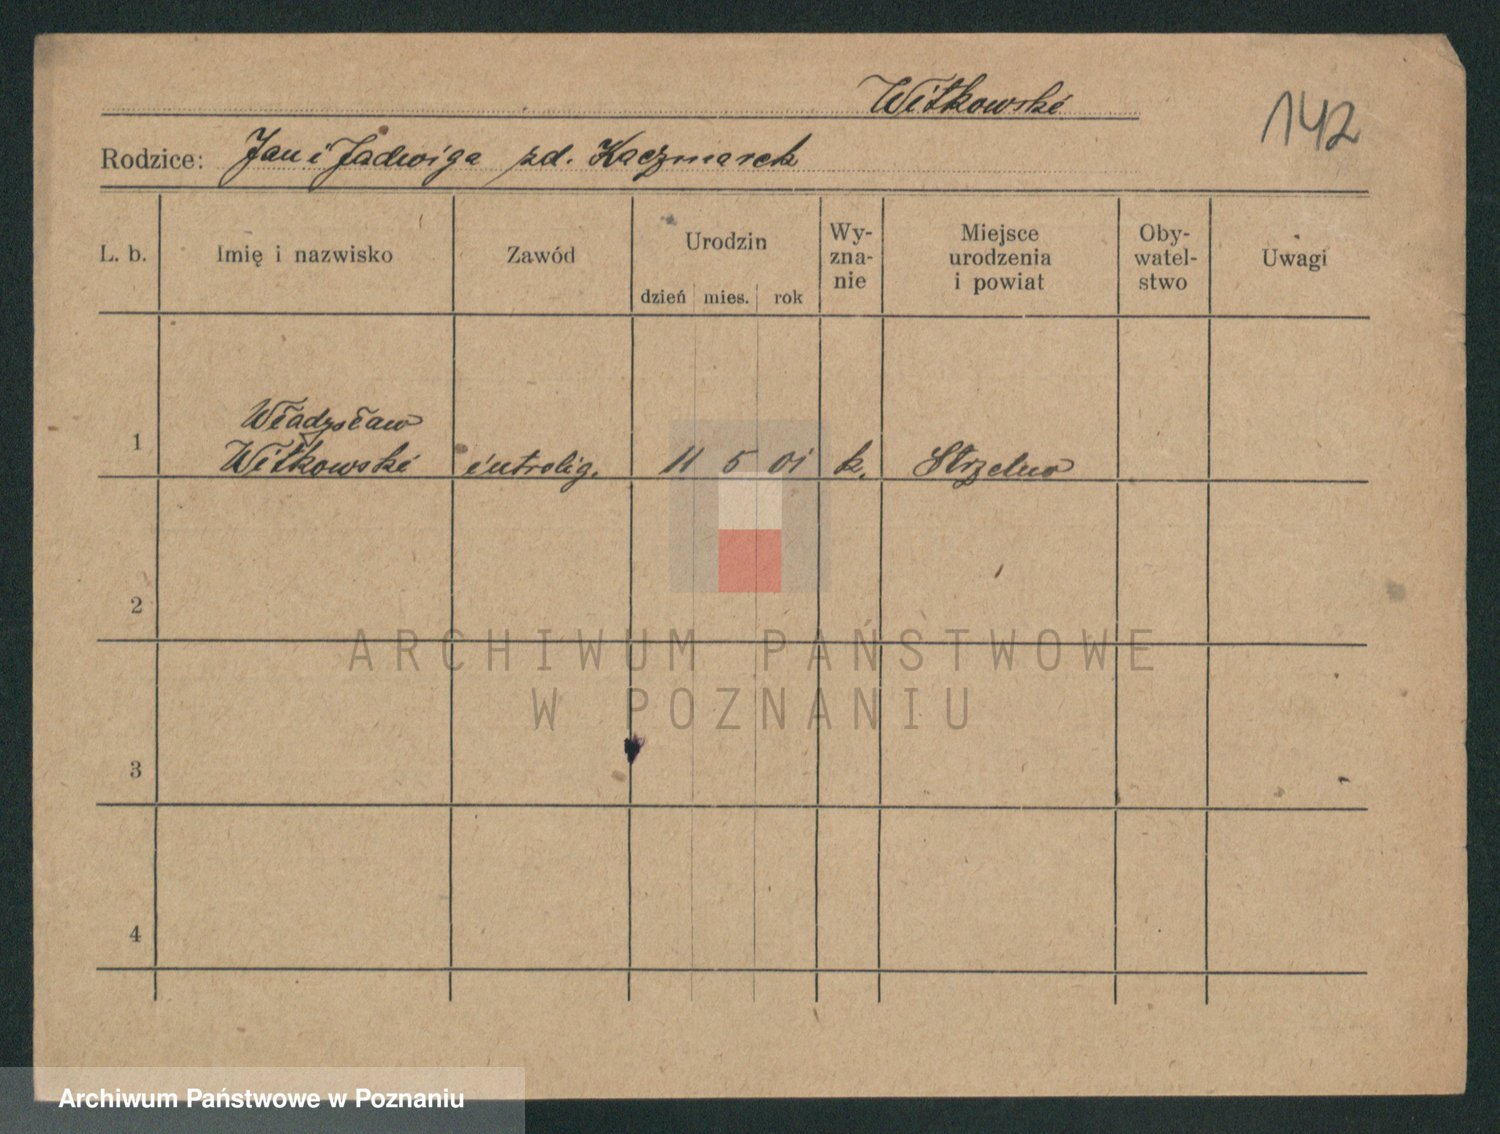 Witkowski
142
Rodzice: Jan i Jadwiga zd. Kaczmarek
L. b. Imię i nazwisko Zawód Urodzin dzień mies. rok Wy-zna-nie Miejsce urodzenia i powiat Oby-watel-stwo Uwagi
Władysław
1 Witkowski introlig. 11 5 01 k. Strzelno
2
ARCHIWUM PAŃSTWOWE
W POZNANIU
3
4
Archiwum Państwowe w Poznaniu